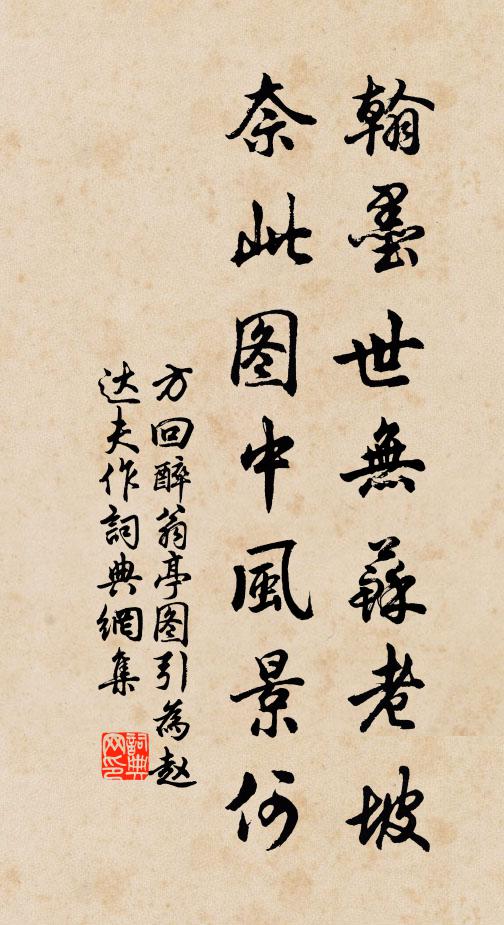 翰墨世無蘇老坡
奈此图中風景何
方回醉翁亭图引為赵
达夫作詞典網集
詞典网印